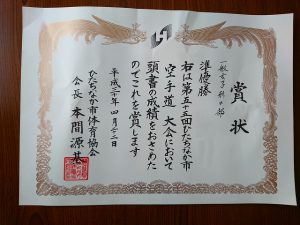 賞状
一般女子形の部
準優勝
右は第五十三回ひたちなか市
空手道大会において
頭書の成績をおさめた
のでこれを賞します
平成三十年四月二十二日
ひたちなか市体育協会
会長 本間源基